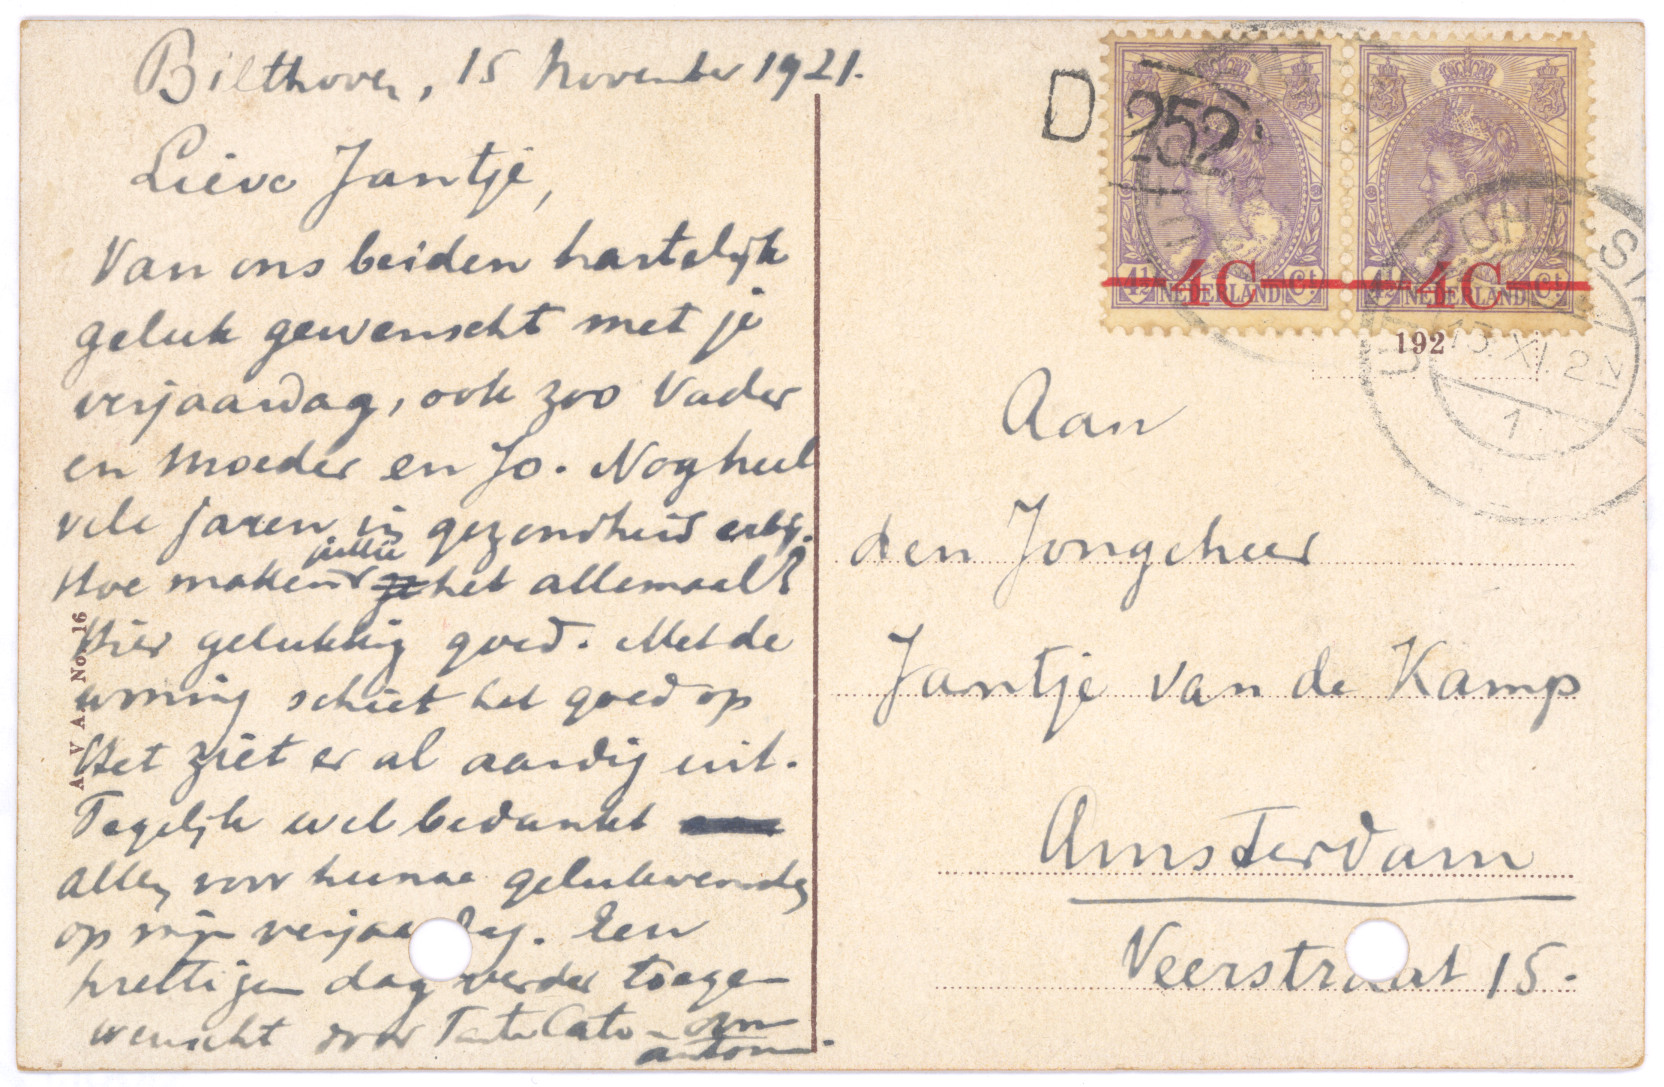 Bilthoven, 15 November 1921.
Lieve Jantje,
Van ons beiden hartelijk
geluk gewenscht met je
verjaardag, ook zoo Vader
en Moeder en Jo. Nog heel
vele jaren in gezondheid
jullie
Hoe maken het allemaal?
Hier gelukkig goed. Met de
woning schiet het goed op
Het ziet er al aardig uit.
Tegelijk wel bedankt
allen voor hunne gelukwensch
op mijn verjaardag. Een
prettigen dag verder toege-
wenscht door Tante Cato - Oom
Anton.
A. V A No 16
D 252
4C 4C
4½ NEDERLAND Ct 4½ NEDERLAND Ct
192
15.XI.21
Aan
den Jongeheer
Jantje van de Kamp
Amsterdam
Veerstraat 15.